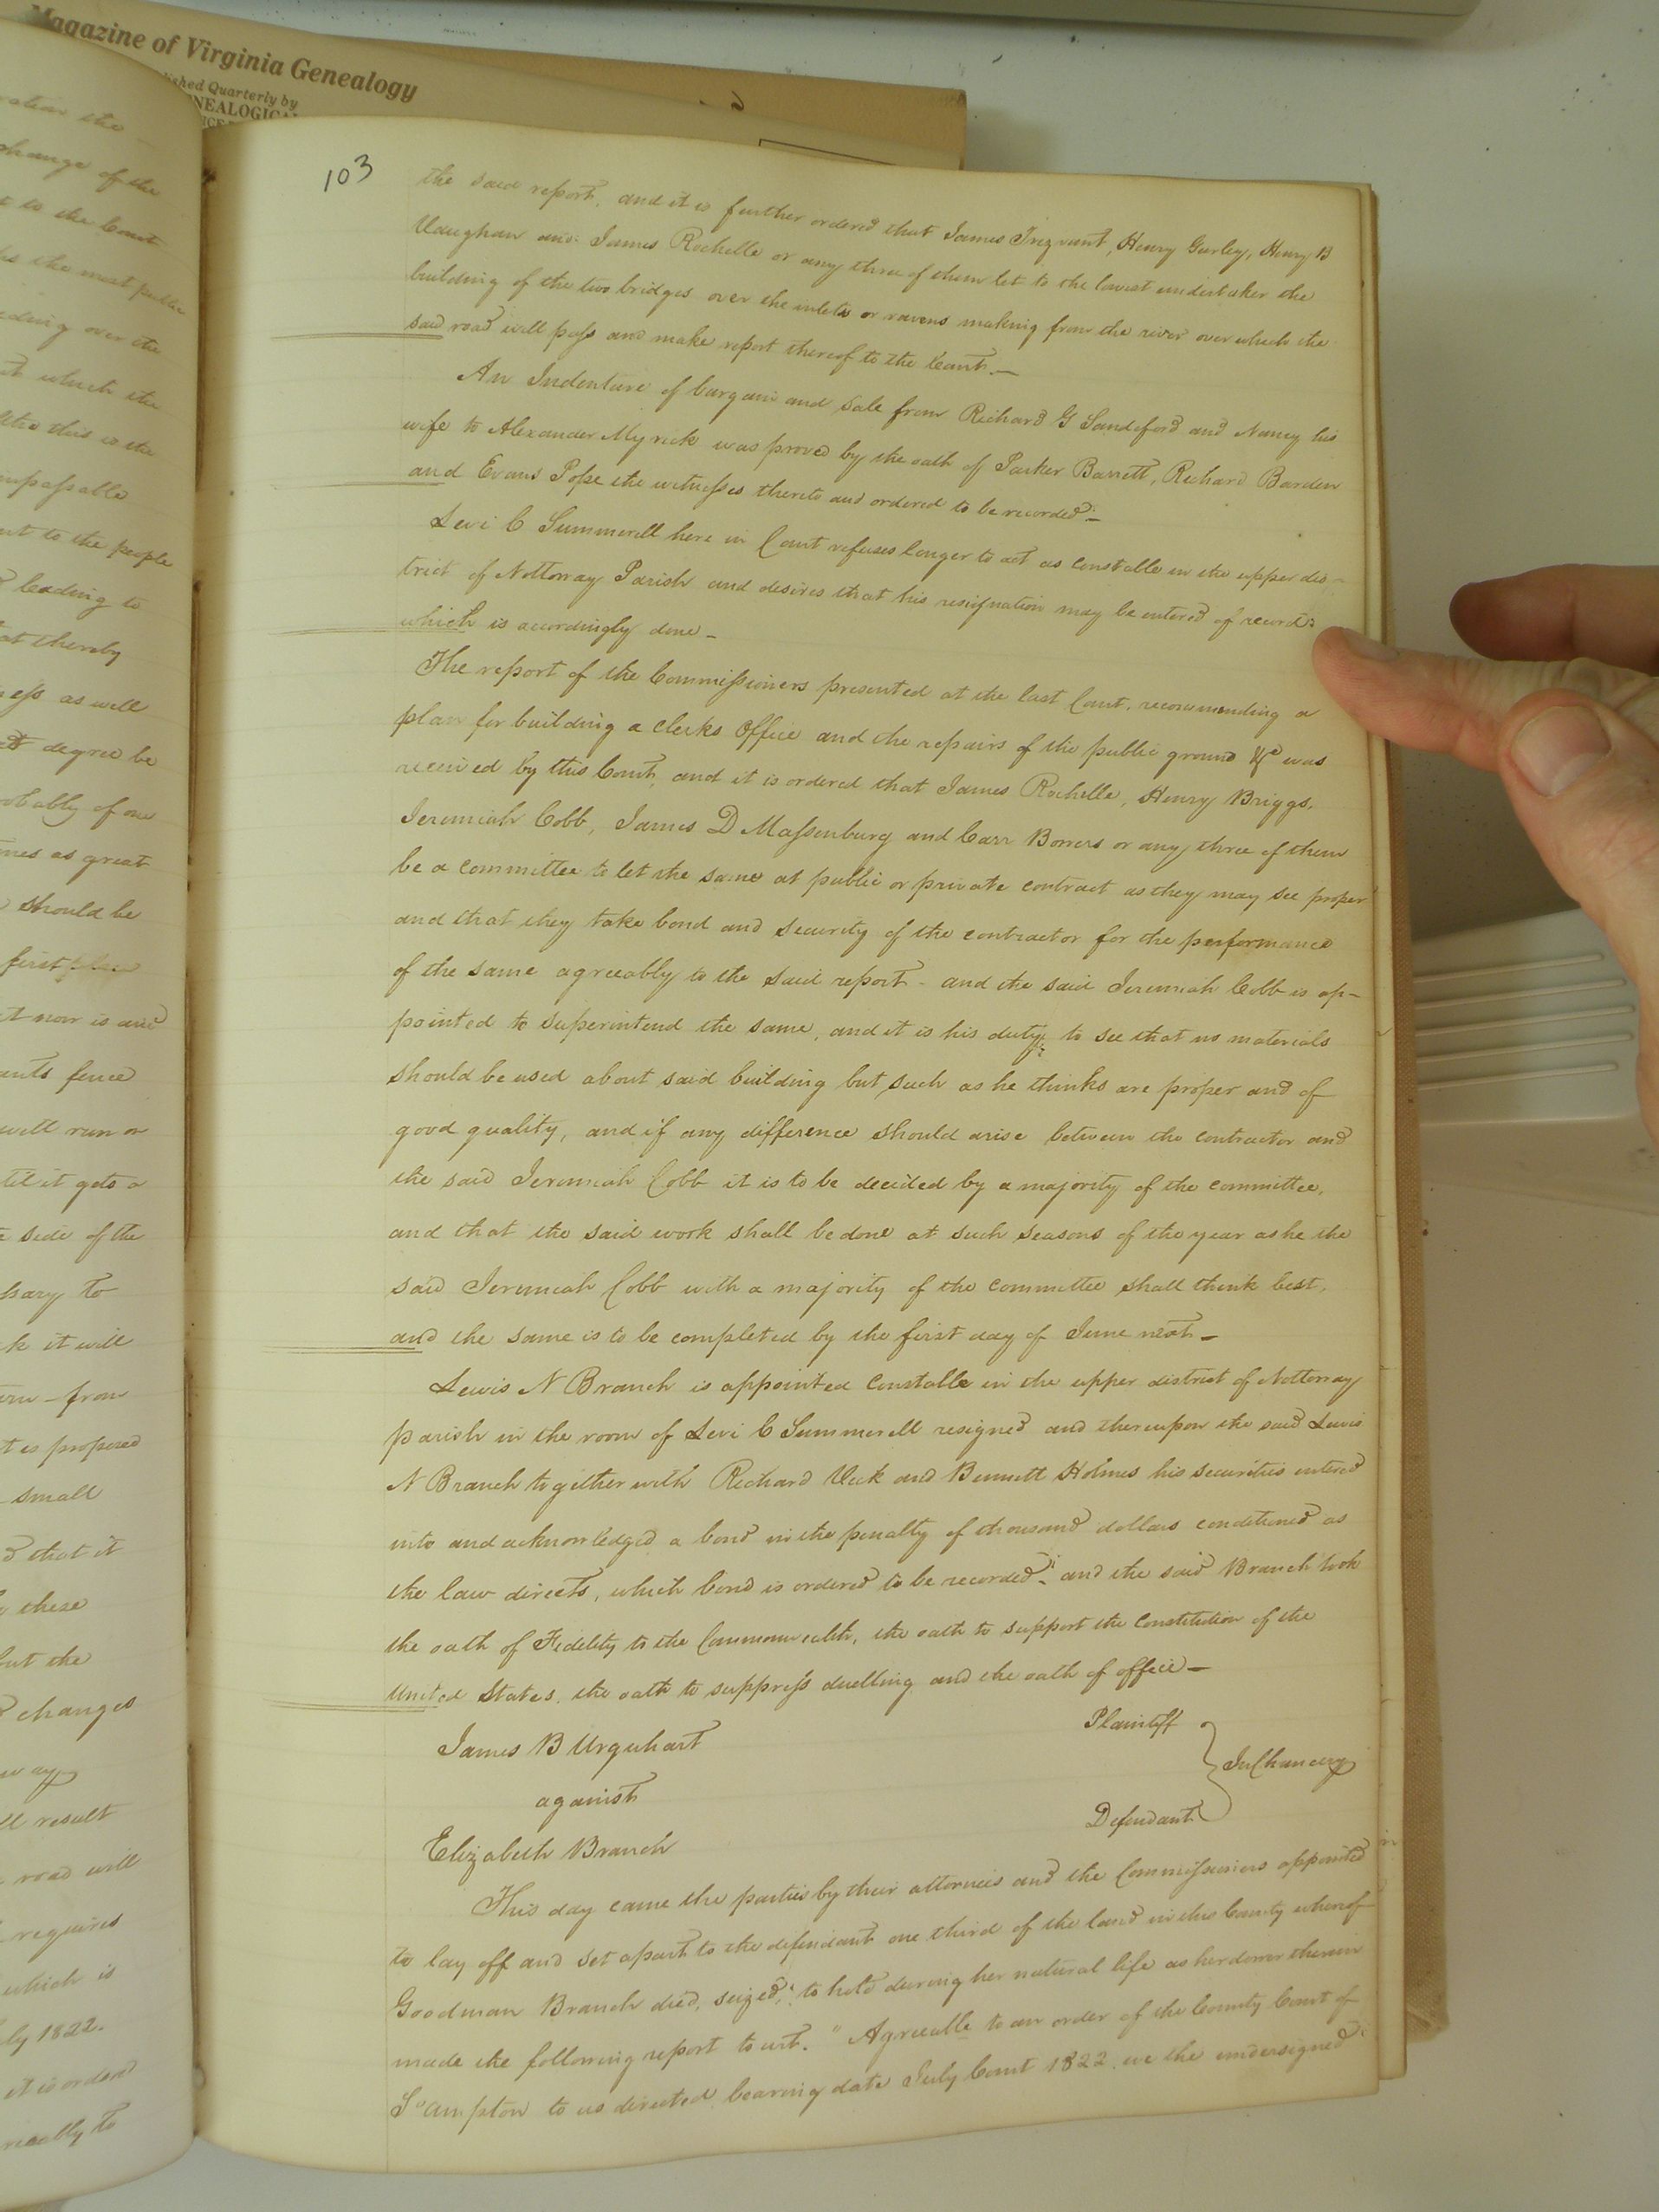 Magazine of Virginia Genealogy
Published Quarterly by
GENEALOGICAL
ration the
change of the
t to the Court
is the most public
eding over the
which the
this is the
impassable
ut to the people
leading to
at thereby
ness as well
degree be
robably of one
mes as great
should be
first place
t now is and
ants fence
will run on
til it gets a
side of the
ssary to
k it will
ern - from
t is proposed
small
that it
these
but the
changes
way
ll result
road will
requires
which is
ly 1822.
it is order'd
reeably to
103
the said report, and it is further ordered that James Trezvant, Henry Gurley, Henry B
Vaughan and James Rochelle or any three of them let to the lowest undertaker the
building of the two bridges over the inlets or ravens making from the river over which the
said road will pass and make report thereof to the Court. —
An Indenture of bargain and sale from Richard G Sandeford and Nancy his
wife to Alexander Myrick was proved by the oath of Parker Barrett, Richard Barden
and Evans Pope the witnesses thereto and ordered to be recorded —
Levi C Summerell here in Court refuses longer to act as constable in the upper dis-
trict of Nottoway Parish and desires that his resignation may be entered of record:
which is accordingly done —
The report of the Commissioners presented at the last Court, recommending a
plan for building a clerks Office and the repairs of the public ground &c was
received by this Court, and it is ordered that James Rochelle, Henry Briggs,
Jeremiah Cobb, James D Massenburg and Carr Bowers or any three of them
be a committee to let the same at public or private contract as they may see proper
and that they take bond and security of the contractor for the performance
of the same agreeably to the said report - and the said Jeremiah Cobb is ap-
pointed to superintend the same, and it is his duty to see that no materials
should be used about said building but such as he thinks are proper and of
good quality, and if any difference should arise between the contractor and
the said Jeremiah Cobb it is to be decided by a majority of the committee,
and that the said work shall be done at such seasons of the year as he the
said Jeremiah Cobb with a majority of the committee shall think best,
and the same is to be completed by the first day of June next —
Lewis N Branch is appointed Constable in the upper district of Nottoway
parish in the room of Levi C Summerell resigned and thereupon the said Lewis
N Branch together with Richard Vick and Bennett Holmes his securities entered
into and acknowledged a bond in the penalty of thousand dollars conditioned as
the law directs, which bond is ordered to be recorded. and the said Branch took
the oath of Fidelity to the Commonwealth, the oath to support the Constitution of the
United States, the oath to suppress duelling and the oath of office —
James B Urquhart Plaintiff
against In Chancery
Elizabeth Branch Defendant
This day came the parties by their attorneis and the Commissioners appointed
to lay off and set apart to the defendant one third of the land in this County whereof
Goodman Branch died, seized, to hold during her natural life as her dower therein
made the following report to wit. "Agreeable to an order of the County Court of
S°ampton to us directed bearing date July Court 1822. we the undersigned